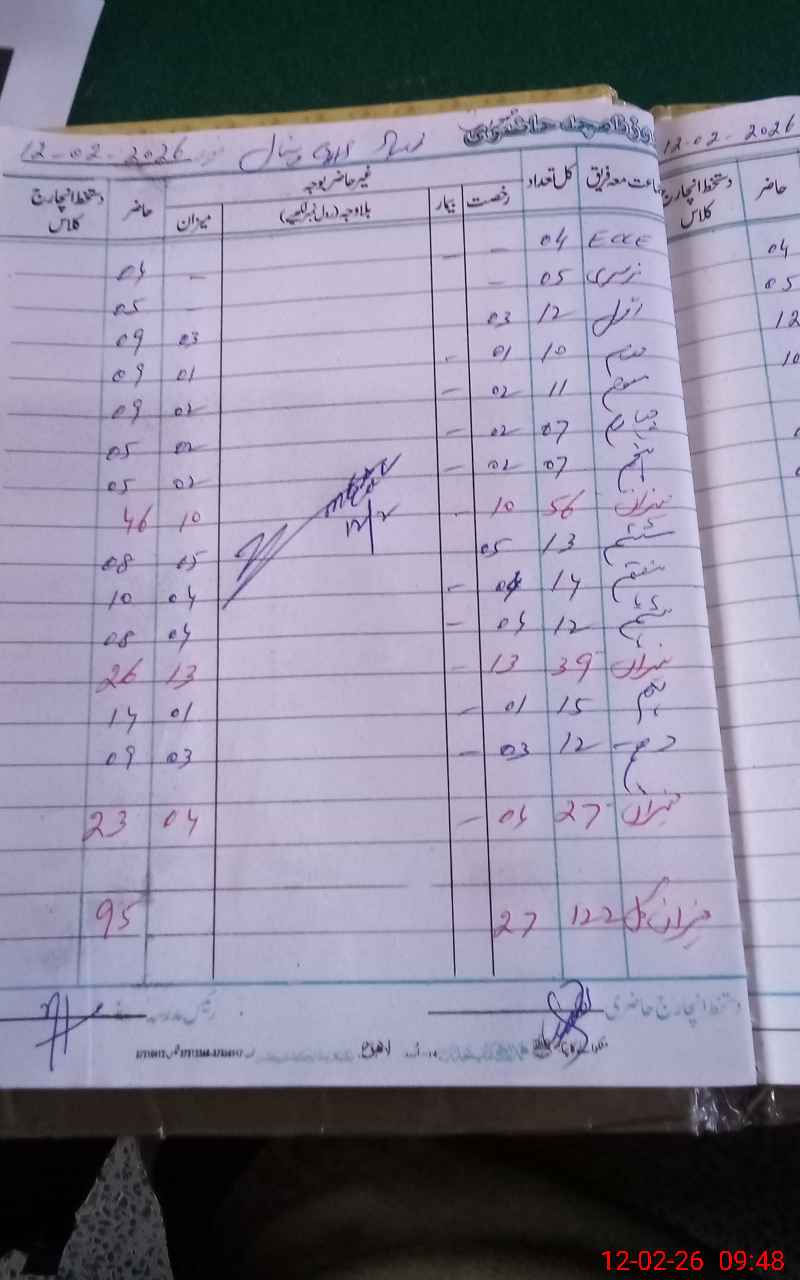 12-02-2026
غیر حاضر بوجہ
جماعت معہ فریق کل تعداد رخصت بیمار بلاوجہ (رول نمبر لکھیے) میزان حاضر دستخط انچارج کلاس
ECCE 04 - - - 04
نرسری 05 - - 05
اول 12 03 03 09
دوئم 10 01 - 01 09
سوئم 11 02 - 02 09
چہارم 07 02 - 02 05
پنجم 07 02 - 02 05
میزان 56 10 - 10 46
ششم 13 05 05 08
ہفتم 14 04 - 04 10
ہشتم 12 04 - 04 08
میزان 39 13 - 13 26
نہم 15 01 - 01 14
دہم 12 03 - 03 09
میزان 27 04 - 04 23
میزان کل 122 27 95
12/2
دستخط انچارج حاضری
12-02-2026
حاضر دستخط انچارج کلاس
04
05
12
10
12-02-26 09:48